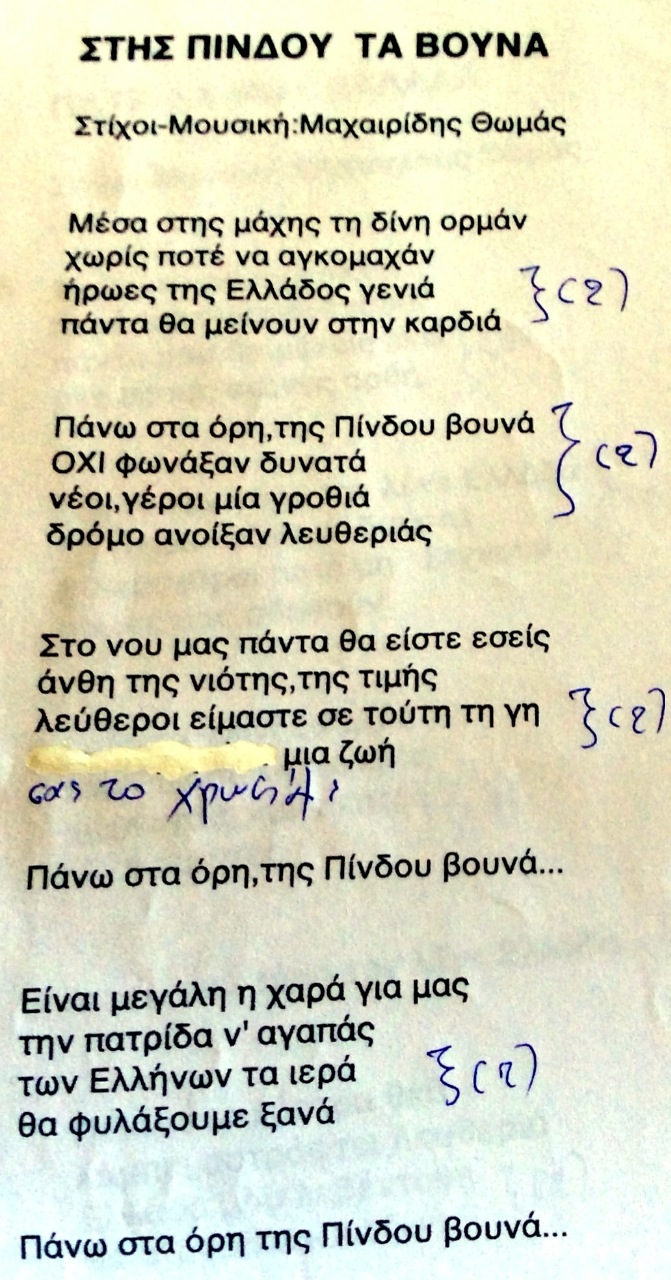 ΣΤΗΣ ΠΙΝΔΟΥ ΤΑ ΒΟΥΝΑ
Στίχοι-Μουσική:Μαχαιρίδης Θωμάς
Μέσα στης μάχης τη δίνη ορμάν
χωρίς ποτέ να αγκομαχάν
ήρωες της Ελλάδος γενιά
πάντα θα μείνουν στην καρδιά
(2)
Πάνω στα όρη,της Πίνδου βουνά
ΟΧΙ φωνάξαν δυνατά
νέοι,γέροι μία γροθιά
δρόμο ανοίξαν λευθεριάς
(2)
Στο νου μας πάντα θα είστε εσείς
άνθη της νιότης,της τιμής
λεύθεροι είμαστε σε τούτη τη γη
μια ζωή
(2)
σας το
Πάνω στα όρη,της Πίνδου βουνά...
Είναι μεγάλη η χαρά για μας
την πατρίδα ν' αγαπάς
των Ελλήνων τα ιερά
θα φυλάξουμε ξανά
(2)
Πάνω στα όρη της Πίνδου βουνά...